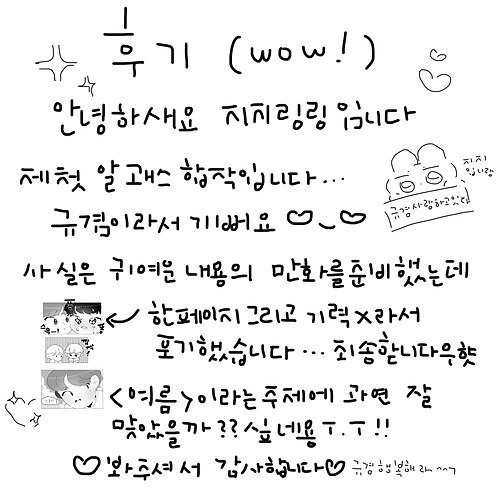 후기 (wow!)
안녕하세요 지지링링입니다
제 첫 알고패스 합작입니다...
규겸이라서 기뻐요 ♡‿♡
지지
입니다
규겸사랑하고있다
사실은 귀여운 내용의 만화를 준비했는데
한페이지 그리고 기력X라서
포기했습니다... 죄송합니다우햣
<여름>이라는 주제에 과연 잘
맞았을까?? 싶네요 ㅜ.ㅜ!!
♡봐주셔서 감사합니다♡ 규겸행복해라^^